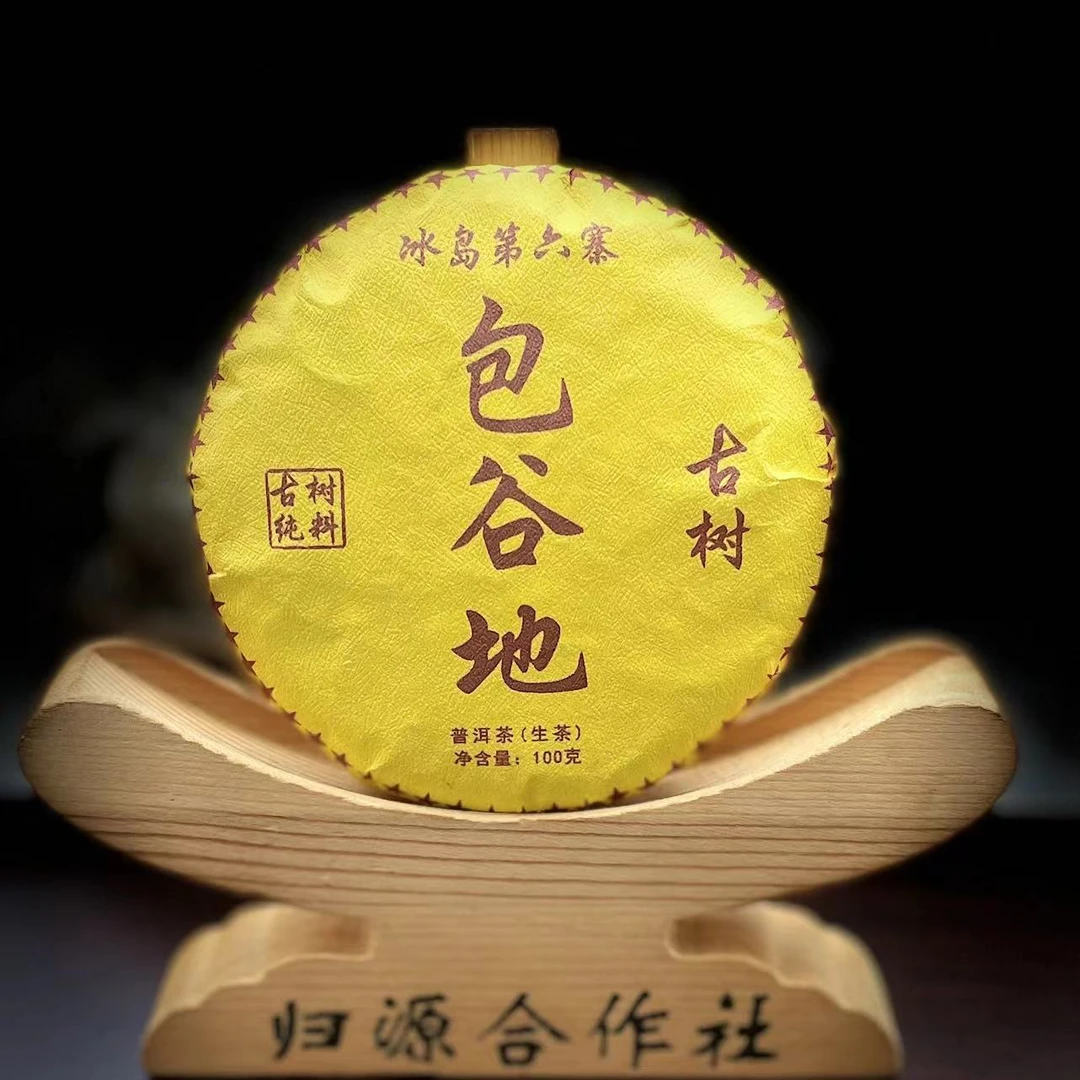 冰岛第六寨
包谷地
古树
古树
纯料
普洱茶(生茶)
净含量：100克
归源合作社